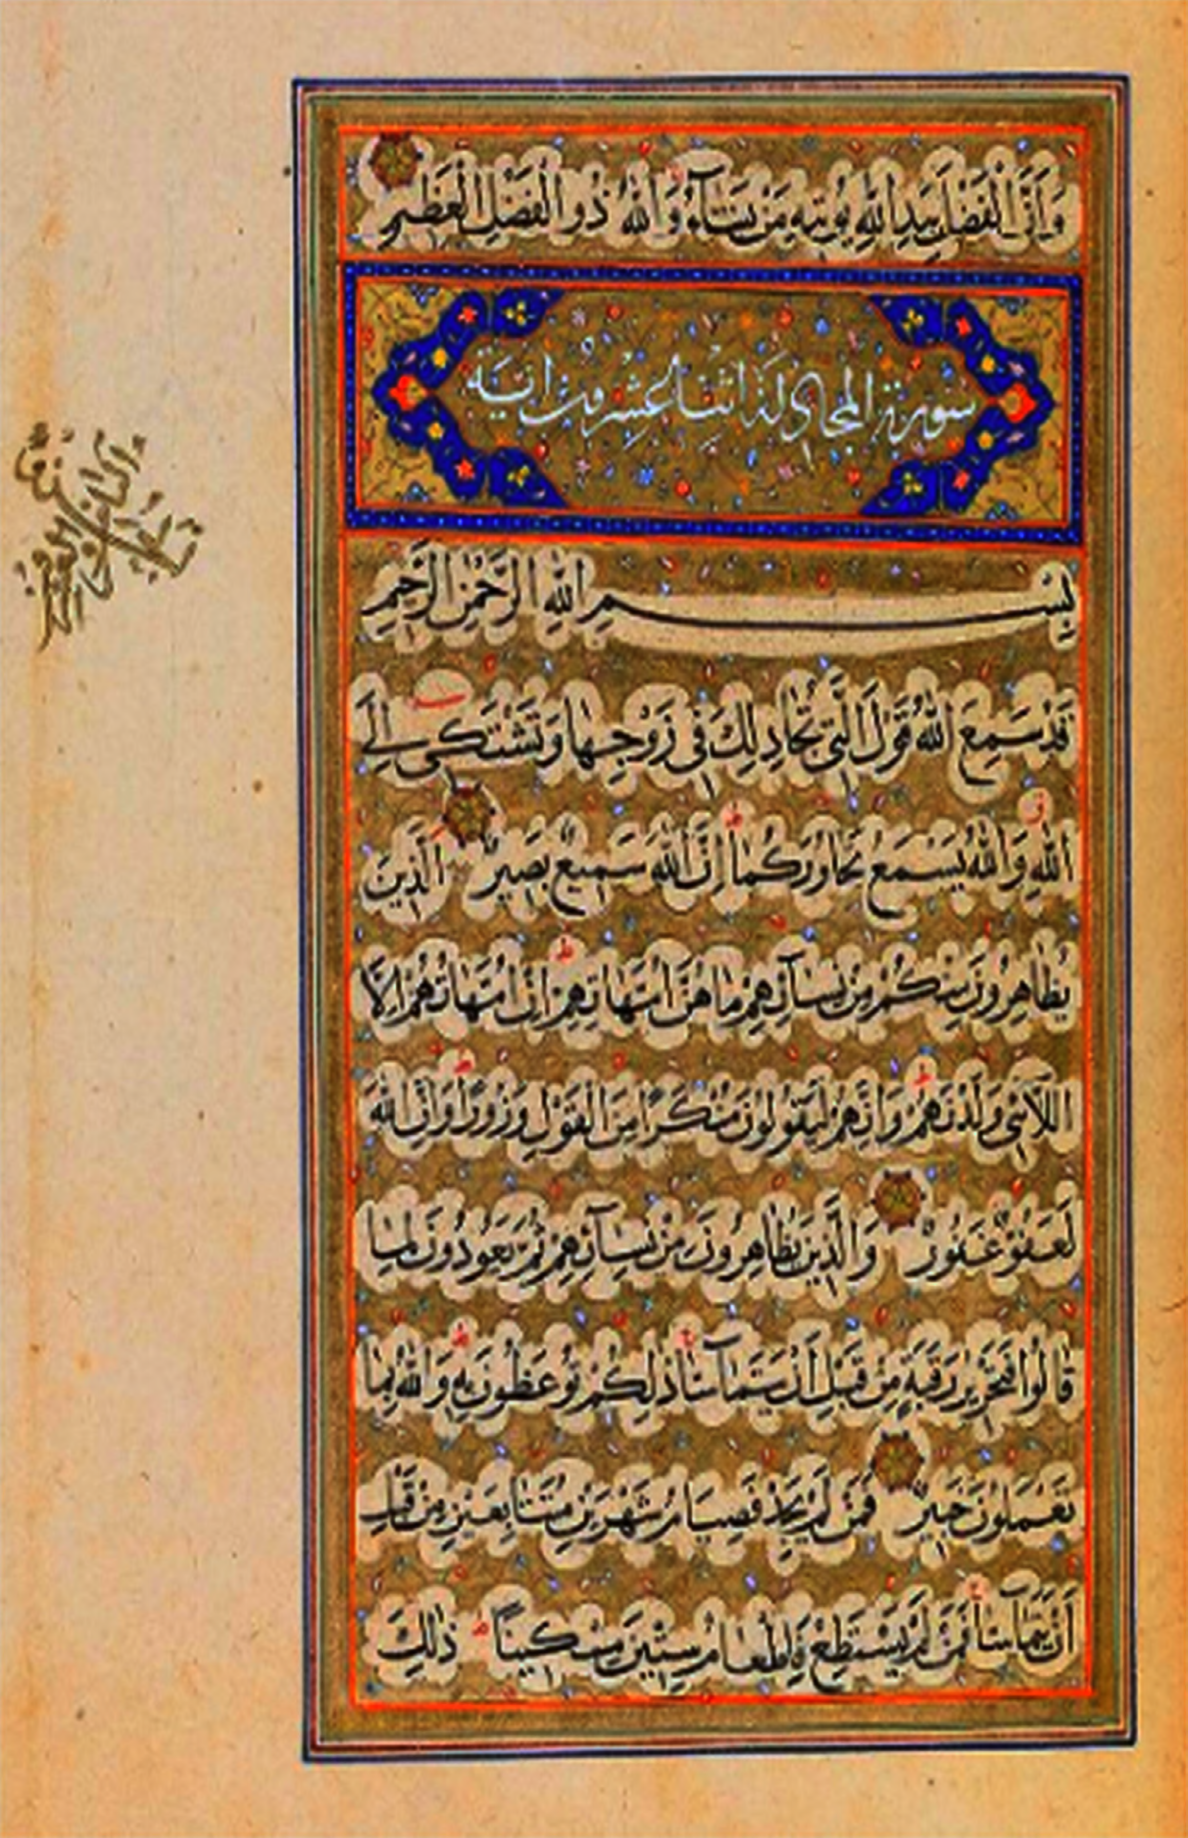 وَاَنَّ الْفَضْلَ بِيَدِ اللّٰهِ يُؤْتِيهِ مَنْ يَشَآءُ وَاللّٰهُ ذُو الْفَضْلِ الْعَظِيمِ
سورة المجادلة اثنتا عشرون اية
بِسْمِ اللّٰهِ الرَّحْمٰنِ الرَّحِيمِ
قَدْ سَمِعَ اللّٰهُ قَوْلَ الَّتِي تُجَادِلُكَ فِي زَوْجِهَا وَتَشْتَكِي اِلَى
اللّٰهِ وَاللّٰهُ يَسْمَعُ تَحَاوُرَكُمَا اِنَّ اللّٰهَ سَمِيعٌ بَصِيرٌ اَلَّذِينَ
يُظَاهِرُونَ مِنْكُمْ مِنْ نِسَآئِهِمْ مَا هُنَّ اُمَّهَاتِهِمْ اِنْ اُمَّهَاتُهُمْ اِلَّا
اللَّآئِي وَلَدْنَهُمْ وَاِنَّهُمْ لَيَقُولُونَ مُنْكَرًا مِنَ الْقَوْلِ وَزُورًا وَاِنَّ اللّٰهَ
لَعَفُوٌّ غَفُورٌ وَالَّذِينَ يُظَاهِرُونَ مِنْ نِسَآئِهِمْ ثُمَّ يَعُودُونَ لِمَا
قَالُوا فَتَحْرِيرُ رَقَبَةٍ مِنْ قَبْلِ اَنْ يَتَمَآسَّا ذٰلِكُمْ تُوعَظُونَ بِهِ وَاللّٰهُ بِمَا
تَعْمَلُونَ خَبِيرٌ فَمَنْ لَمْ يَجِدْ فَصِيَامُ شَهْرَيْنِ مُتَتَابِعَيْنِ مِنْ قَبْلِ
اَنْ يَتَمَآسَّا فَمَنْ لَمْ يَسْتَطِعْ فَاِطْعَامُ سِتِّينَ مِسْكِينًا ذٰلِكَ